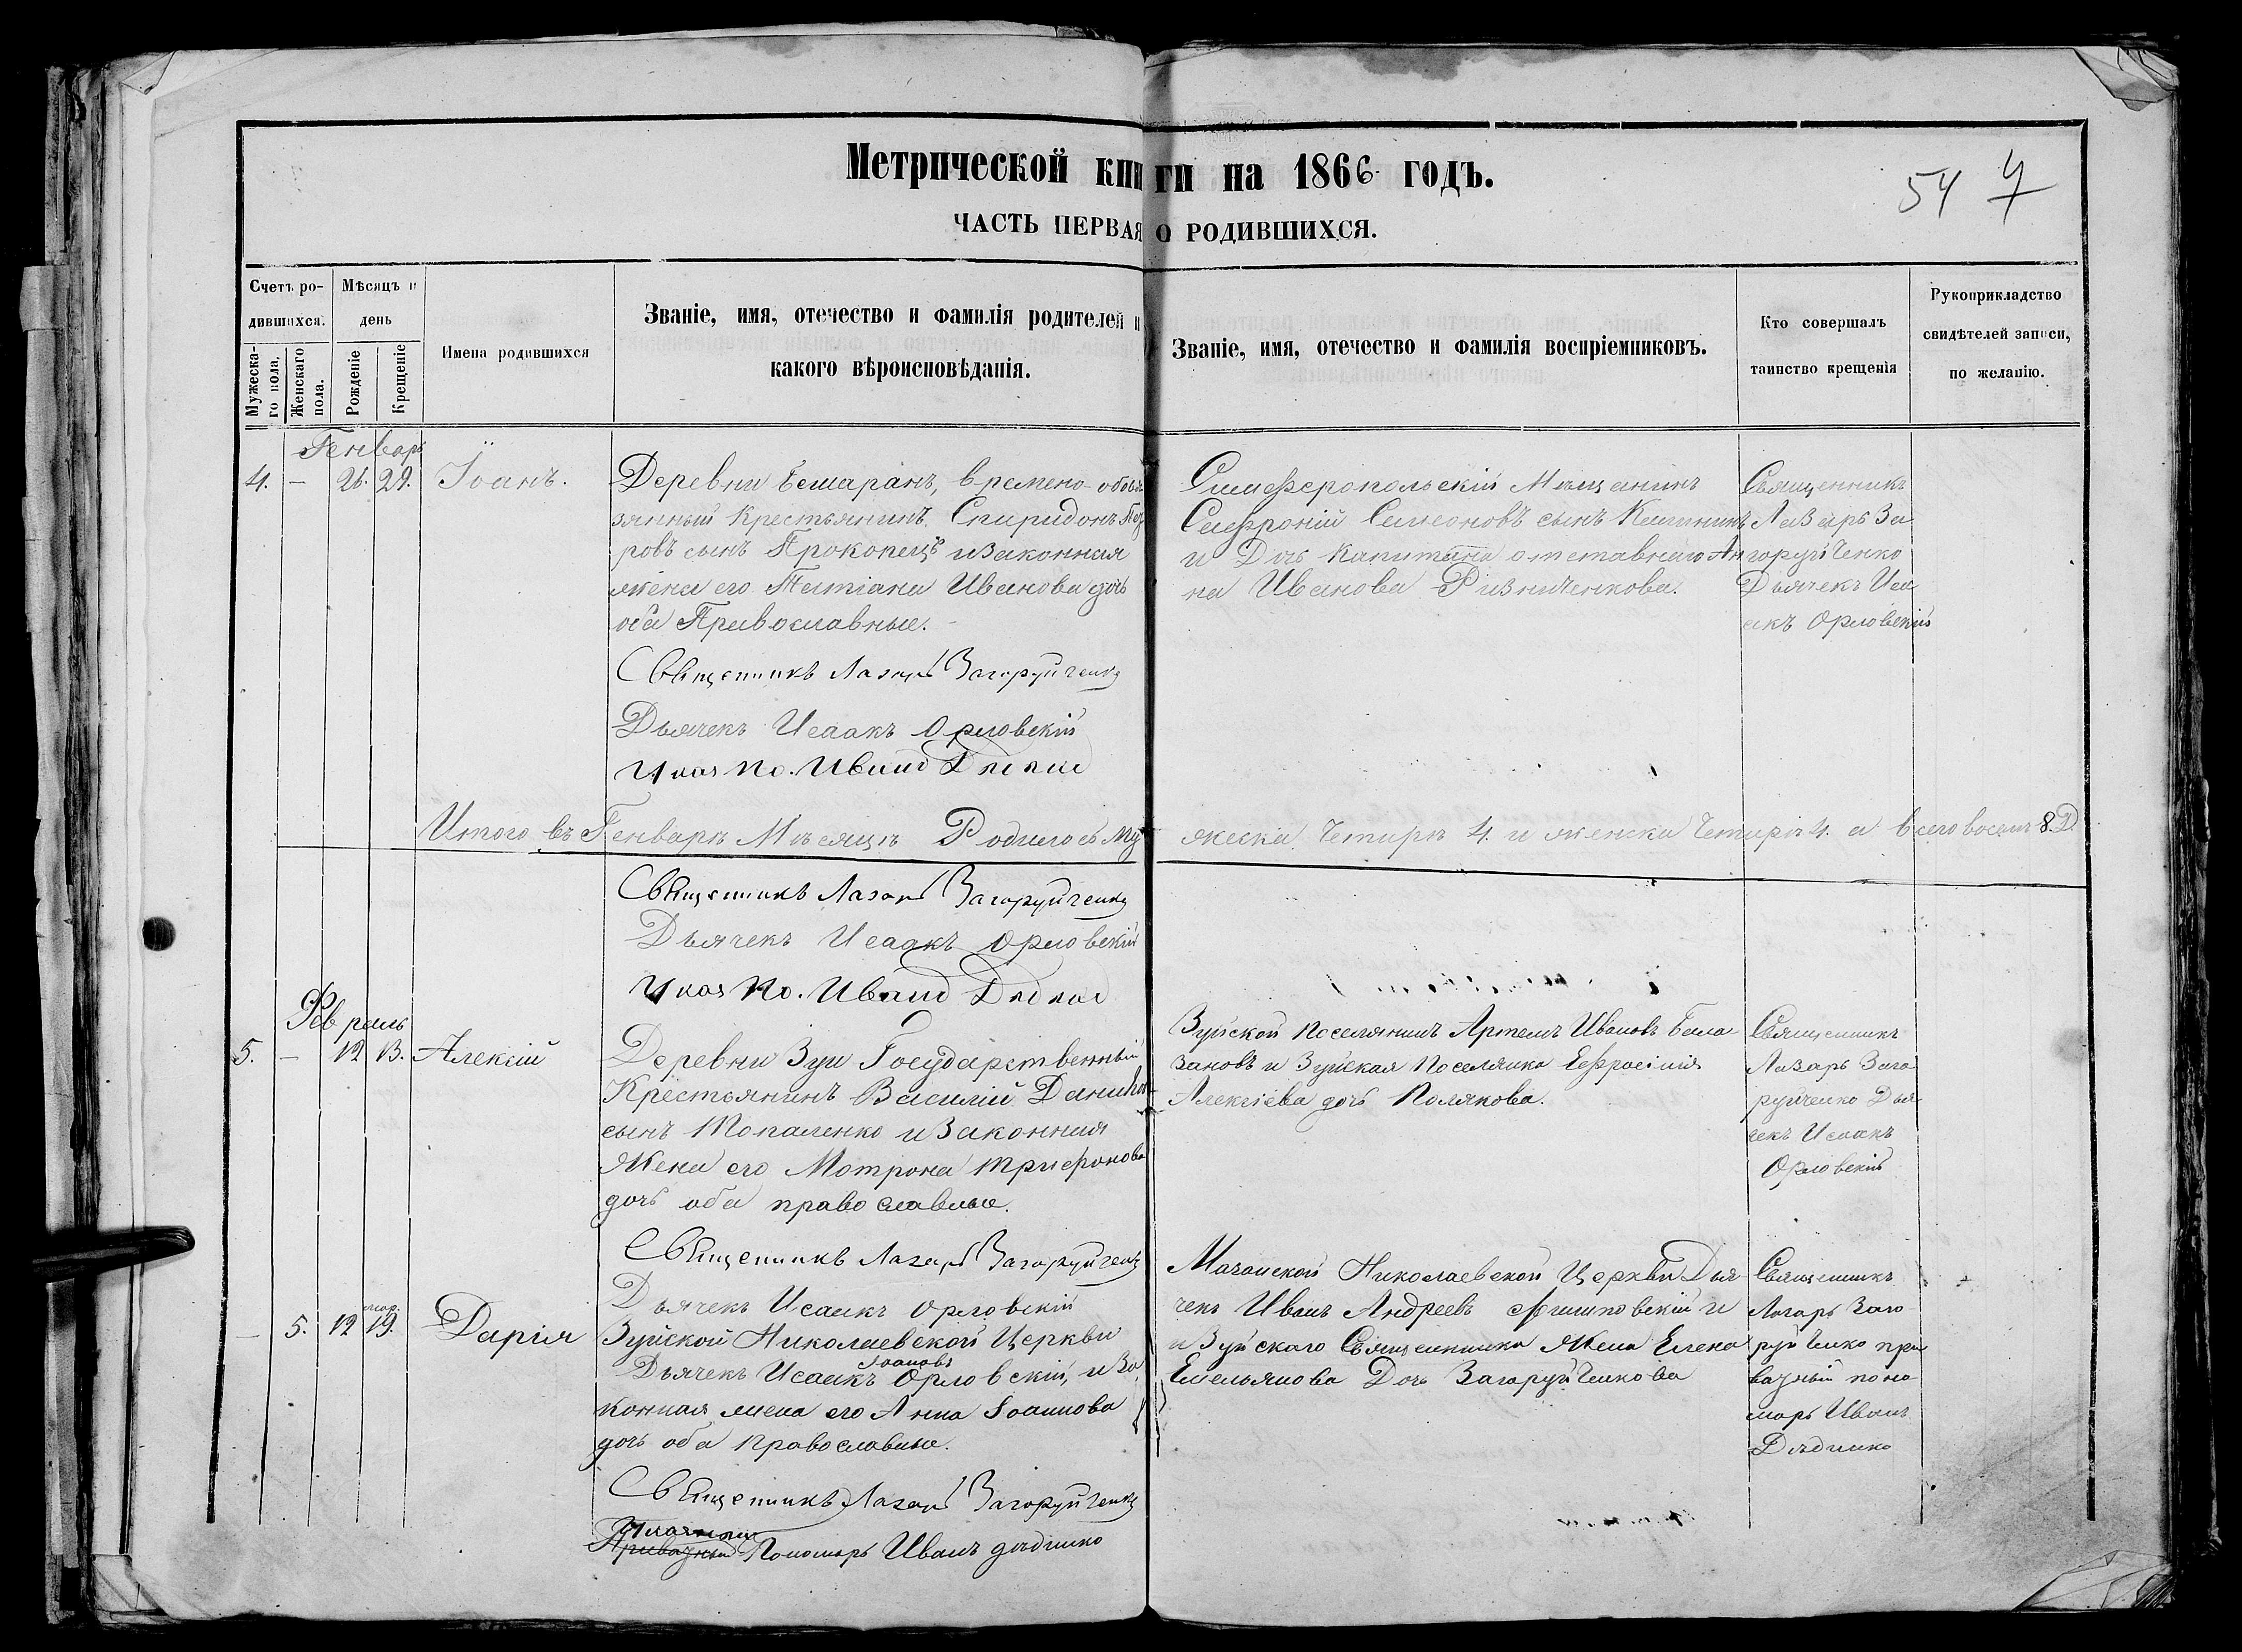 Метрической книги на 1866 годъ.
54 4
ЧАСТЬ ПЕРВАЯ О РОДИВШИХСЯ.
Счетъ ро-
дившихся.
Мужеска-
го пола.
Женскаго
пола.
Мѣсяцъ и
день
Рожденіе
Крещеніе
Имена родившихся
Званіе, имя, отечество и фамилія родителей и
какого вѣроисповѣданія.
Званіе, имя, отечество и фамилія воспріемниковъ.
Кто совершалъ
таинство крещенія
Рукоприкладство
свидѣтелей записи,
по желанію.
Генварь
4. — 26. 29. Іоанъ.
Деревни Бешаранъ, времено-обя
зянный Крестьянинъ Спиридонъ Пет
ровъ сынъ Прокопецъ и законная
жена его Татіана Иванова дочь
оба Православные.
Священникъ Лазарь Загоруйченко
Дьячекъ Исаакъ Орловскій
Симферопольскій Мещанинъ
Софроній Симеоновъ сынъ
и Дочь Капитана отставнаго Ан
на Иванова Ризниченкова.
Священникъ
Лазарь За
горуйченко
Дьячекъ Иса
акъ Орловскій
Итого въ Генварѣ Мѣсяцѣ Родилось му
жеска Четырѣ 4. и женска Четырѣ 4. а всего восемъ 8. Д
Священникъ Лазарь Загоруйченко
Дьячекъ Исаакъ Орловскій
Февраль
5. — 12 13. Алексій
Деревни Зуи Государственный
Крестьянинъ Василій
сынъ Топаленко и законная
Жена его Мотрона Трифонова
дочь оба православные.
Зуйской поселянинъ Артемъ Ивановъ Бела
зановъ и Зуйская Поселянка Ефросинія
Алексіева дочь Полякова.
Священникъ
Лазарь Заго
руйченко Дья
чекъ Исаакъ
Орловскій
Священникъ Лазарь Загоруйченко
Дьячекъ Исаакъ Орловскій
— 5. 12 мар. 19. Дарія
Зуйской Николаевской Церкви
Дьячекъ Исаакъ Іоановъ Орловскій, и за
конная жена его Анна Іоаннова
дочь оба православные.
Николаевской Церкви Дья
чекъ Иванъ Андреевъ и
и Зуйскаго Священника Жена Елена
Емельянова Дочь Загоруйченкова
Священникъ
Лазарь Заго
руйченко при
ватный поно
марь Иванъ
Дядченко
Священникъ Лазарь Загоруйченко
Приватный Пономарь Иванъ Дядченко